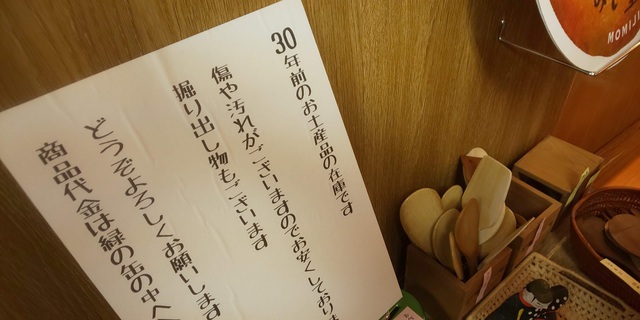 30年前のお土産品の在庫です
傷や汚れがございますのでお安くしておりま
掘り出し物もございます
どうぞよろしくお願いします
商品代金は緑の缶の中へ
MOMIJI